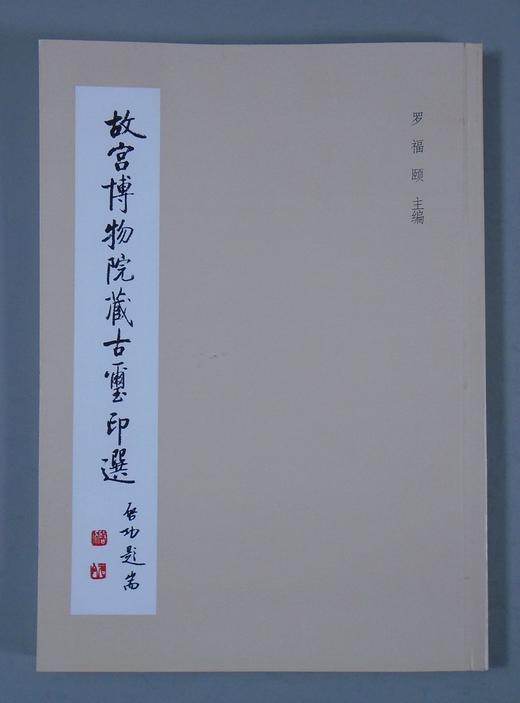 罗福颐 主编
故宫博物院藏古璽印選
启功题耑